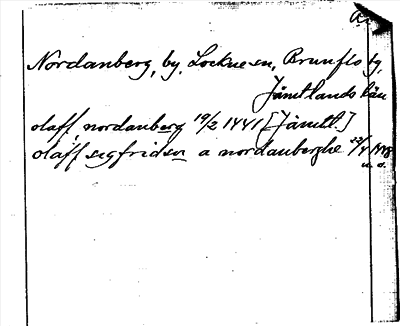 Nordanberg, by, Lockne sn, Brunflo tg,
Jämtlands län
olaff nordanberg 19/2 1441 [Jämtl.]
olaff sigfridsen a nordanberghe